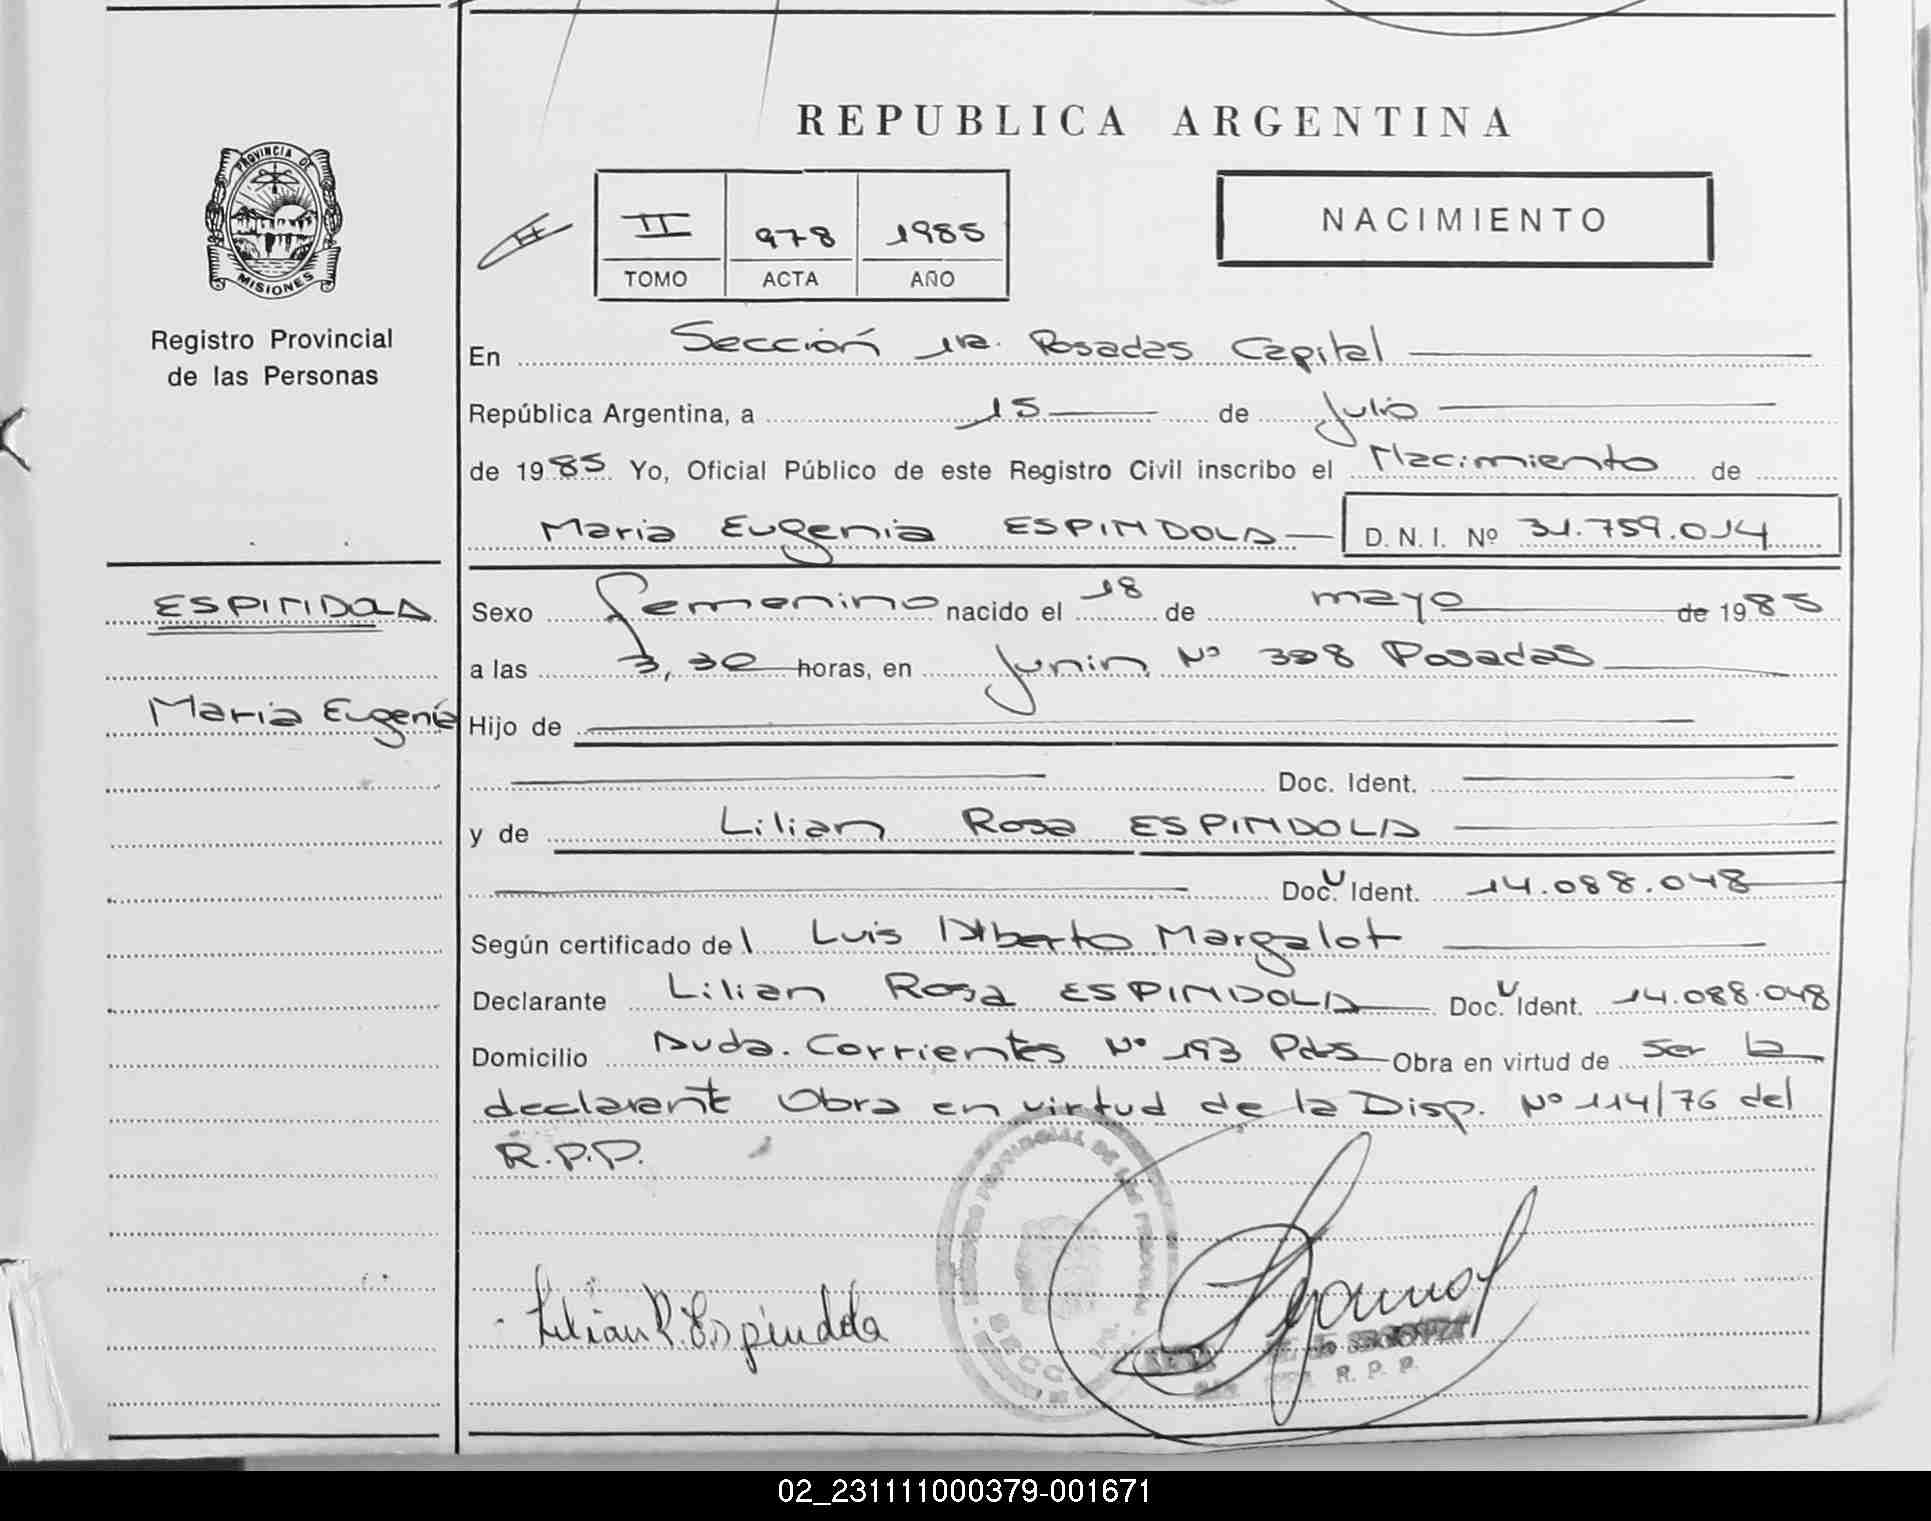 REPUBLICA ARGENTINA
PROVINCIA DE
MISIONES
Registro Provincial
de las Personas
II 978 1985
TOMO ACTA AÑO
NACIMIENTO
En Sección 1ra. Posadas Capital
República Argentina, a 15 de Julio
de 1985 Yo, Oficial Público de este Registro Civil inscribo el Nacimiento de
Maria Eugenia ESPINDOLA D. N. I. Nº 31.759.014
ESPINDOLA
Maria Eugenia
Sexo femenino nacido el 18 de mayo de 1985
a las 3,30 horas, en Junin Nº 308 Posadas
Hijo de
Doc. Ident.
y de Lilian Rosa ESPINDOLA
Doc. U Ident. 14.088.048
Según certificado del Luis Alberto Margalot
Declarante Lilian Rosa ESPINDOLA Doc. U Ident. 14.088.048
Domicilio Avda. Corrientes Nº 193 Pdas Obra en virtud de ser la
declarante Obra en virtud de la Disp. Nº 114/76 del
R.P.P.
REGISTRO PROVINCIAL DE LAS PERSONAS
Lilian R. Espindola
R. P. P.
02_231111000379-001671